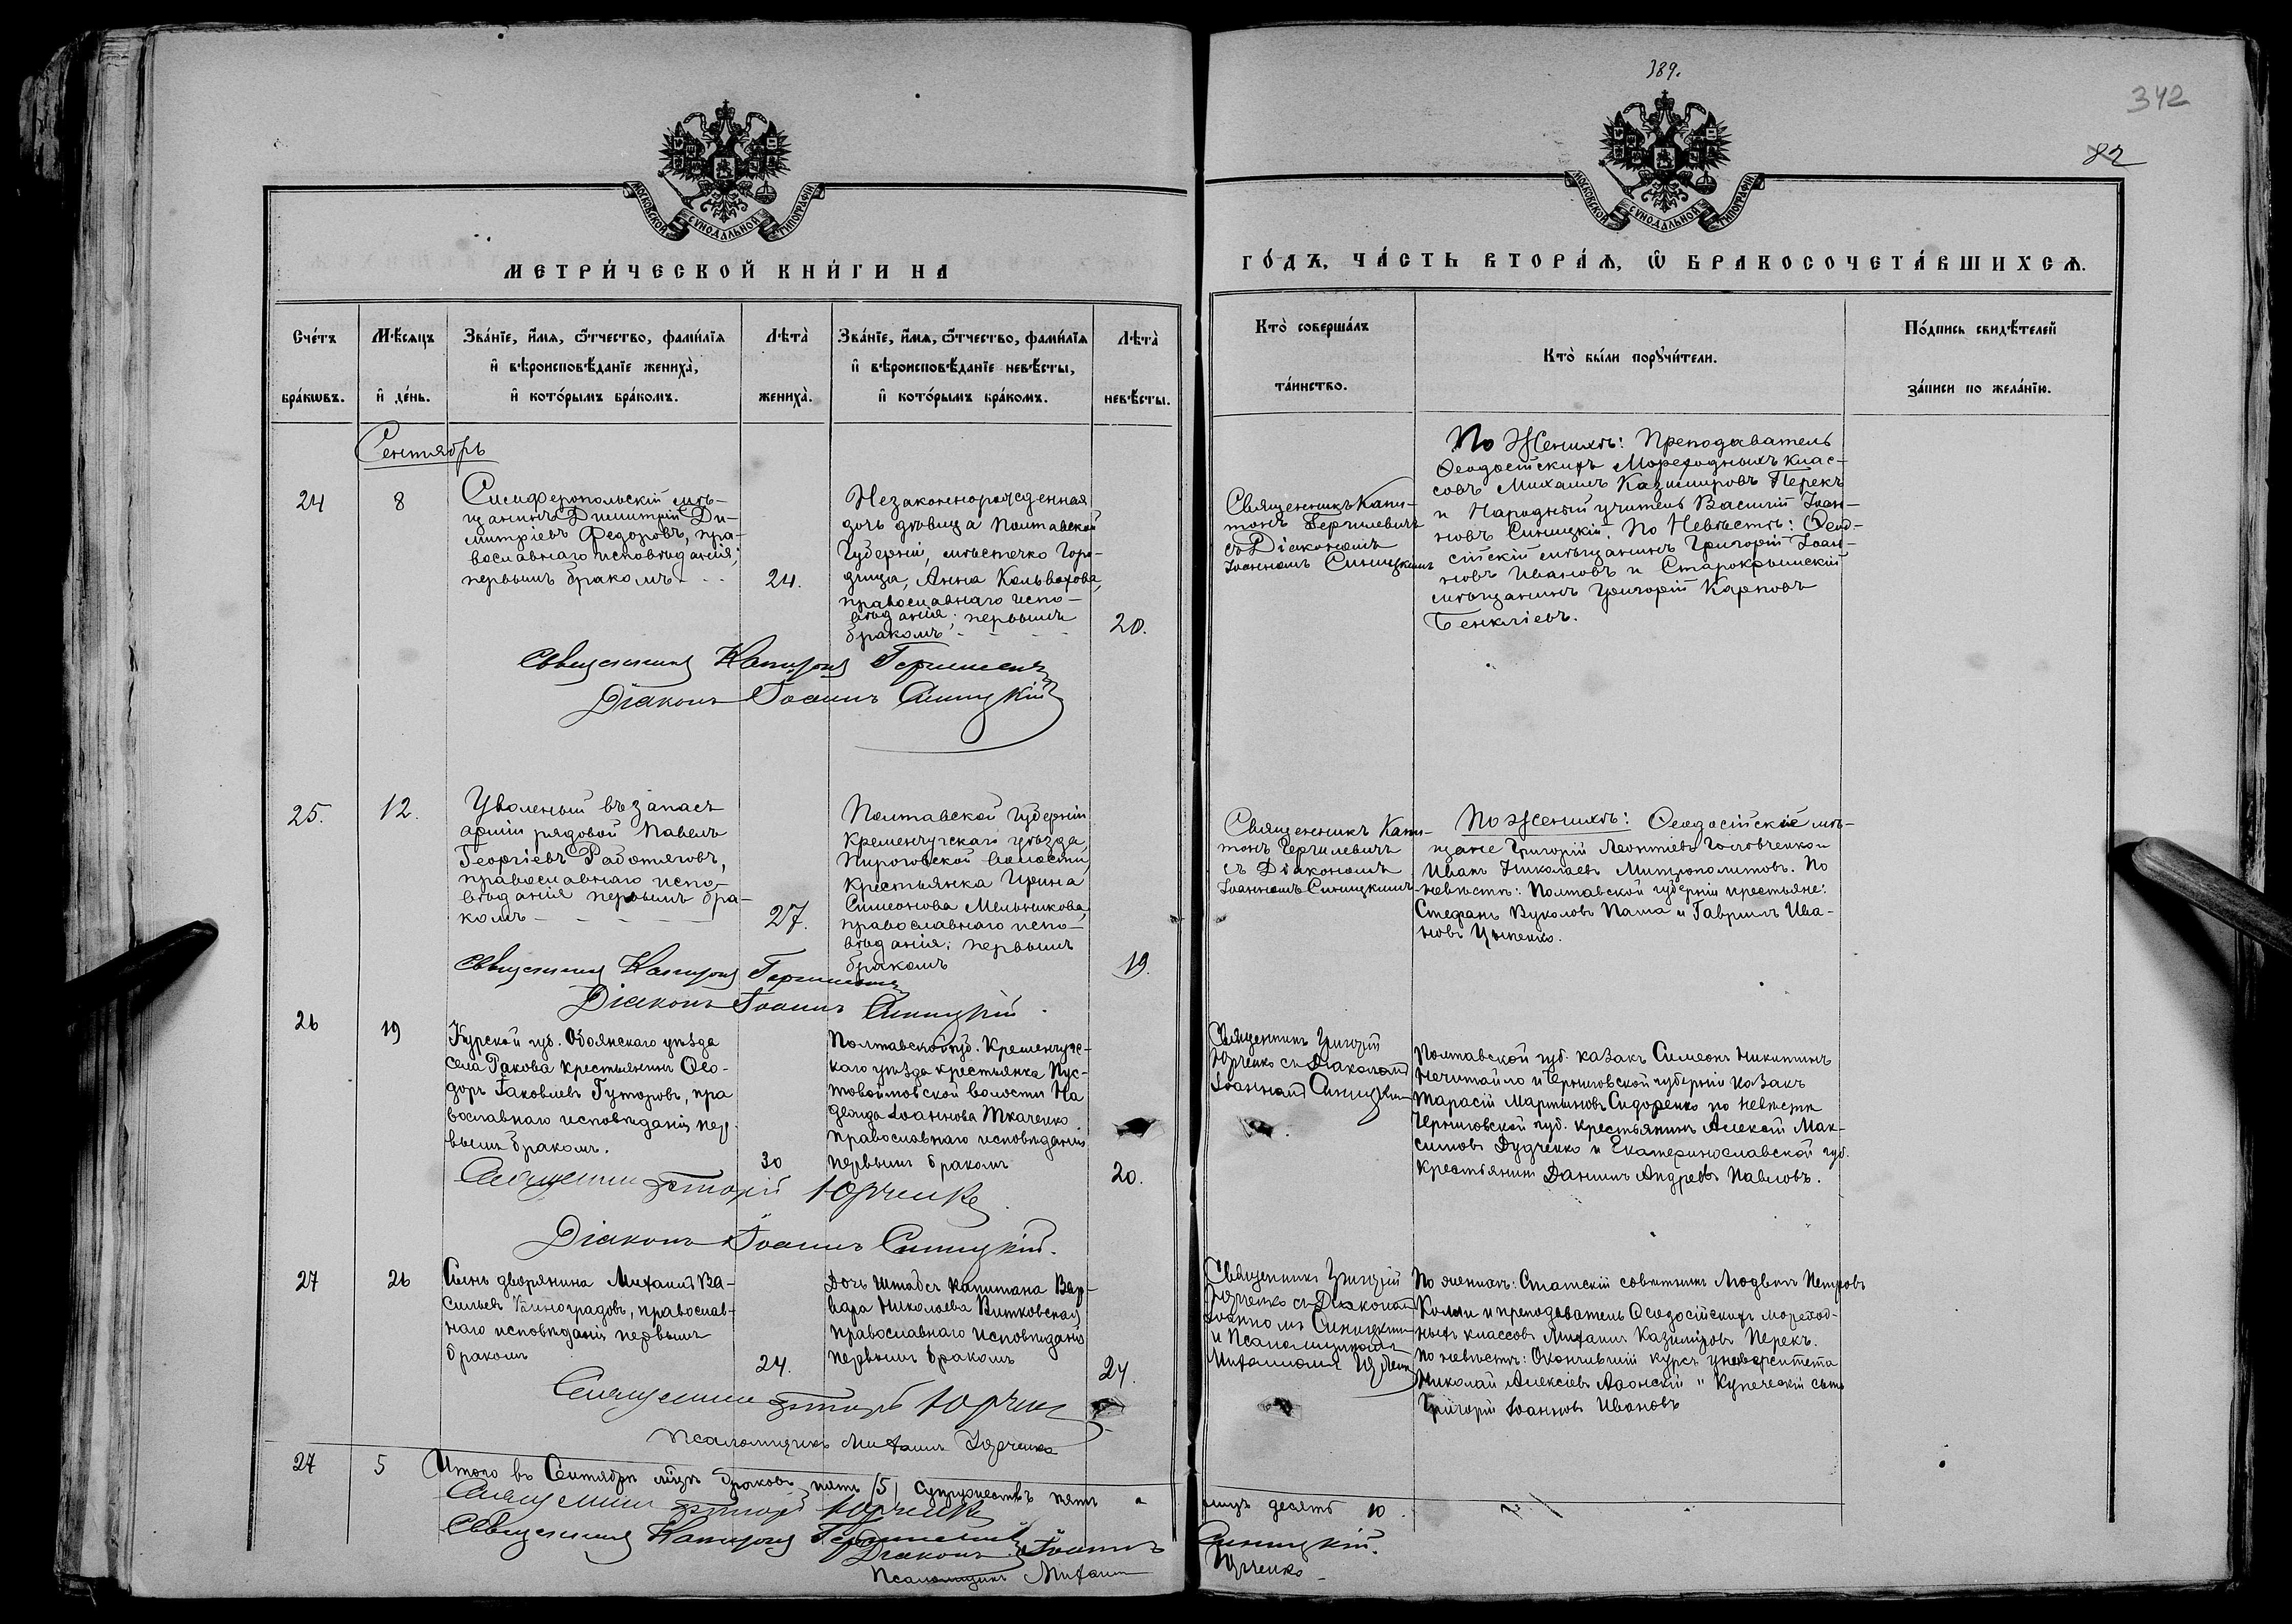 389.
342
82
МОСКОВСКОЙ СУНОДАЛЬНОЙ ТИПОГРАФІИ
МОСКОВСКОЙ СУНОДАЛЬНОЙ ТИПОГРАФІИ
МЕТРИ́ЧЕСКОЙ КНИ́ГИ НА
ГО́ДЪ, ЧА́СТЬ ВТОРА́Ѧ, Ѡ҆ БРАКОСОЧЕТА́ВШИХСѦ.
Сче́тъ
бра́кѡвъ.
Мѣ́сяцъ
и҆ де́нь.
Зва́нїе, и҆́мѧ, ѻ҆́тчество, фами́лїѧ
и҆ вѣроисповѣ́данїе жениха̀,
и҆ кото́рымъ бра́комъ.
Лѣта̀
жениха̀.
Зва́нїе, и҆́мѧ, ѻ҆́тчество, фами́лїѧ
и҆ вѣроисповѣ́данїе невѣ́сты,
и҆ кото́рымъ бра́комъ.
Лѣта̀
невѣ́сты.
Кто̀ соверша́лъ
та́инство.
Кто̀ бы́ли порꙋчи́тели.
По́дпись свидѣ́телей
за́писи по жела́нїю.
Сентябрь
24
8
Симферопольскій мѣ-
щанинъ Димитрій Ди-
митріевъ Федоровъ, пра-
вославнаго исповѣданія;
первымъ бракомъ
24.
Незаконнорожденная
дочь дѣвица Полтавской
Губерніи, мѣстечко Горо-
дища, Анна Кольвахова,
православнаго испо-
вѣданія; первымъ
бракомъ
20.
Священникъ Капи-
тонъ Гергилевичъ
съ Діакономъ
Іоанномъ Синицкимъ
По Женихѣ: Преподаватель
Ѳеодосійскихъ Мореходныхъ клас-
совъ Михаилъ Казимировъ Перекъ
и Народный учитель Василій Іоан-
новъ Синицкій. По Невѣстѣ: Ѳеодо-
сійскій мѣщанинъ Григорій Іоан-
новъ Ивановъ и Старокрымскій
мѣщанинъ Григорій Карповъ
Бенкліевъ.
Священникъ Капитонъ Гергилевичъ
Діаконъ Іоаннъ Синицкій
25.
12.
Уволеный въ запасъ
арміи рядовой Павелъ
Георгіевъ Работяговъ,
православнаго испо-
вѣданія первымъ бра-
комъ
27.
Полтавской Губерніи
Кременчугскаго уѣзда,
Пироговской волости,
крестьянка Ирина
Симеонова Мельникова,
православнаго испо-
вѣданія; первымъ
бракомъ
19.
Священникъ Капи-
тонъ Гергилевичъ
съ Діакономъ
Іоанномъ Синицкимъ
По Женихѣ: Ѳеодосійскіе мѣ-
щане Григорій Леонтіевъ Головченко и
Иванъ Николаевъ Митрополитовъ. По
невѣстѣ: Полтавской губерніи крестьяне:
Стефанъ Вуколовъ Паша и Гавріилъ Ива-
новъ
Священникъ Капитонъ Гергилевичъ
Діаконъ Іоаннъ Синицкій.
26
19
Курской губ. Обоянскаго уѣзда
села Ракова крестьянинъ Ѳео-
доръ Іаковлевъ Гуторовъ, пра
вославнаго исповѣданія пер-
вымъ бракомъ.
30
Полтавской губ. Кременчуг-
скаго уѣзда крестьянка Пус-
товойтовской волости На
дежда Іоаннова Ткаченко
православнаго исповѣданія
первымъ бракомъ
20.
Священникъ Григорій
Юрченко съ Діакономъ
Іоанномъ Синицкимъ
Полтавской губ. казакъ Симеонъ Никитинъ
Нечитайло и Черниговской губерніи казакъ
Тарасій Мартыновъ Сидоренко по невѣстѣ
Черниговской губ. крестьянинъ Алексій Мак-
симовъ Дудченко и Екатеринославской губ.
крестьянинъ Даніилъ Андреевъ Павловъ.
Священникъ Григорій Юрченко
Діаконъ Іоаннъ Синицкій.
27
26
Сынъ дворянина Михаилъ Ва-
сильевъ Виноградовъ, православ-
наго исповѣданія первымъ
бракомъ
24.
Дочь Штабсъ Капитана Вар-
вара Николаева Витковская
православнаго исповѣданія
первымъ бракомъ
24.
Священникъ Григорій
Юрченко съ Діакономъ
Іоанномъ Синицкимъ
и Псаломщикомъ
Михаиломъ Юрченко
По женихѣ: Статскій совѣтникъ Людвигъ Петровъ
Колли и преподаватель Ѳеодосійскихъ мореход-
ныхъ классовъ Михаилъ Казиміровъ Перекъ.
По невѣстѣ: Окончившій курсъ университета
Николай Алексіевъ Аѳонскій и Купеческій сынъ
Григорій Іоанновъ Ивановъ
Священникъ Григорій Юрченко
Псаломщикъ Михаилъ Юрченко
27
5
Итого въ Сентябрѣ мѣсяцѣ браковъ пять /5/ супружествъ пять а
лицъ десять 10.
Священникъ Григорій Юрченко
Священникъ Капитонъ Гергилевичъ
Діаконъ Іоаннъ Синицкій.
Псаломщикъ Михаилъ Юрченко